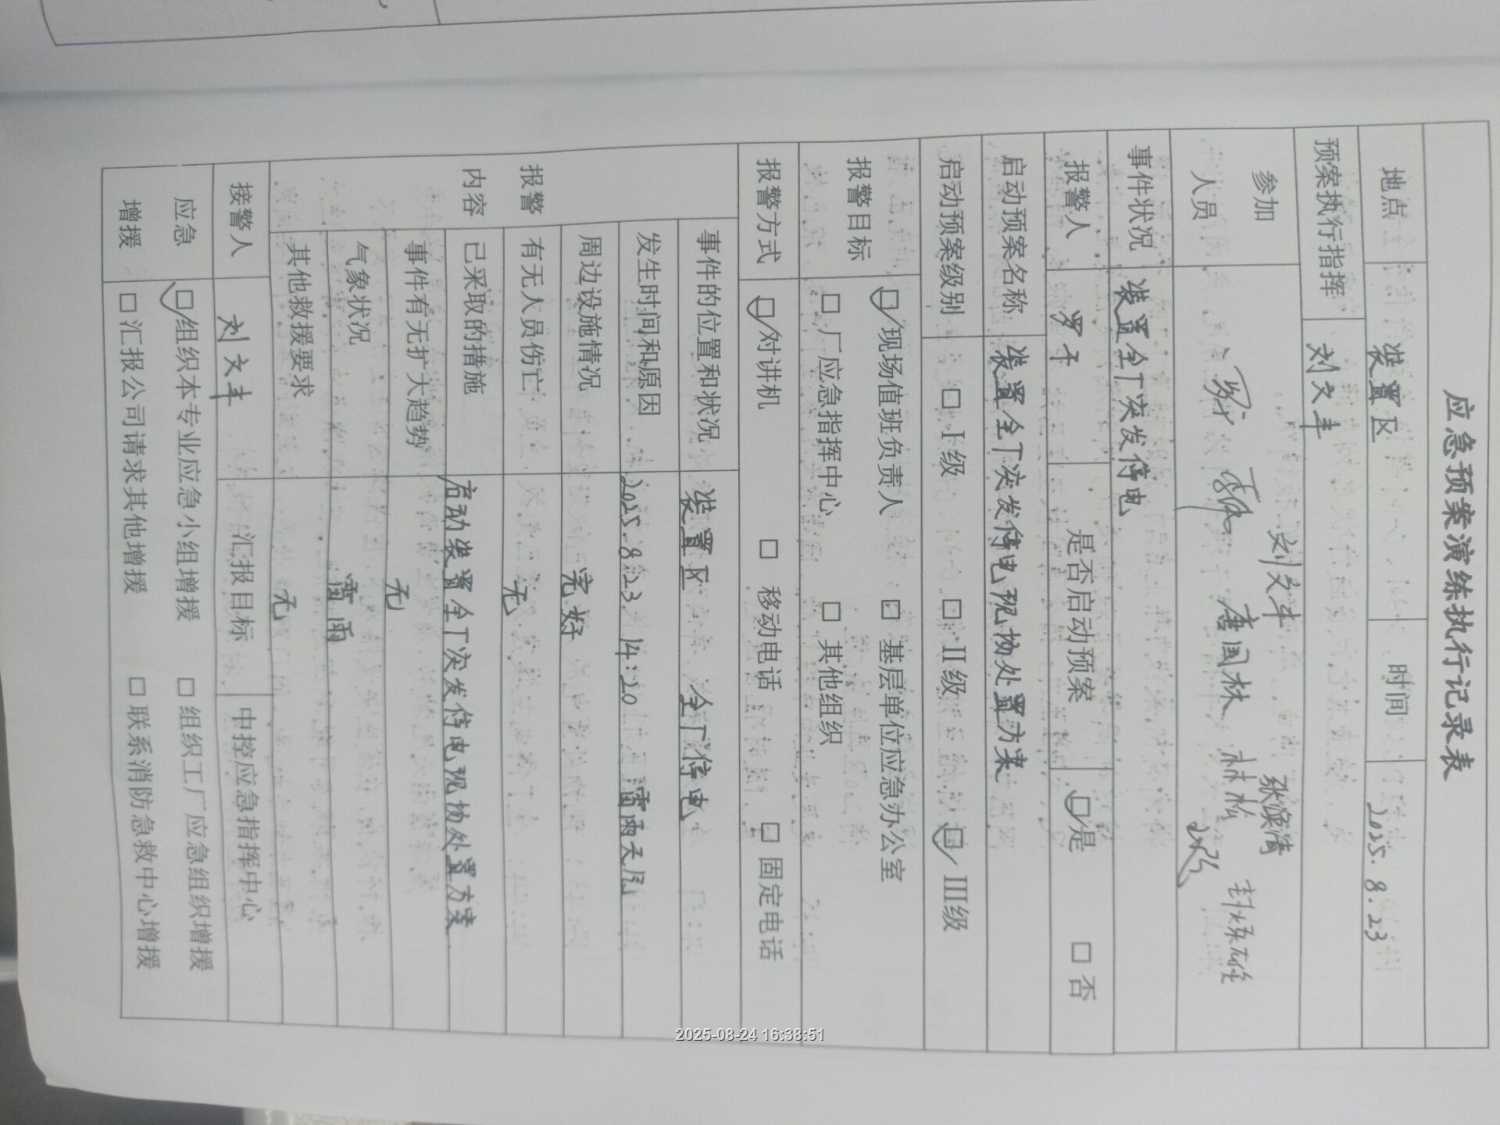 应急预案演练执行记录表
地点 装置区 时间 2025.8.23
预案执行指挥 刘文丰
参加人员 刘文丰 唐国林 林松
事件状况 装置全厂突发停电
报警人 罗干 是否启动预案 ☑是 □否
启动预案名称 装置全厂突发停电现场处置方案
启动预案级别 □Ⅰ级 □Ⅱ级 ☑Ⅲ级
报警目标 ☑现场值班负责人 □基层单位应急办公室
□厂应急指挥中心 □其他组织
报警方式 ☑对讲机 □移动电话 □固定电话
报警内容
事件的位置和状况 装置区 全厂停电
发生时间和原因 2025.8.23. 14:20 雷雨天气
周边设施情况 完好
有无人员伤亡 无
已采取的措施 启动装置全厂突发停电现场处置方案
事件有无扩大趋势 无
气象状况 雷雨
其他救援要求 无
接警人 刘文丰 汇报目标 中控应急指挥中心
应急增援 ☑组织本专业应急小组增援 □组织工厂应急组织增援
□汇报公司请求其他增援 □联系消防急救中心增援
2025-08-24 16:38:51